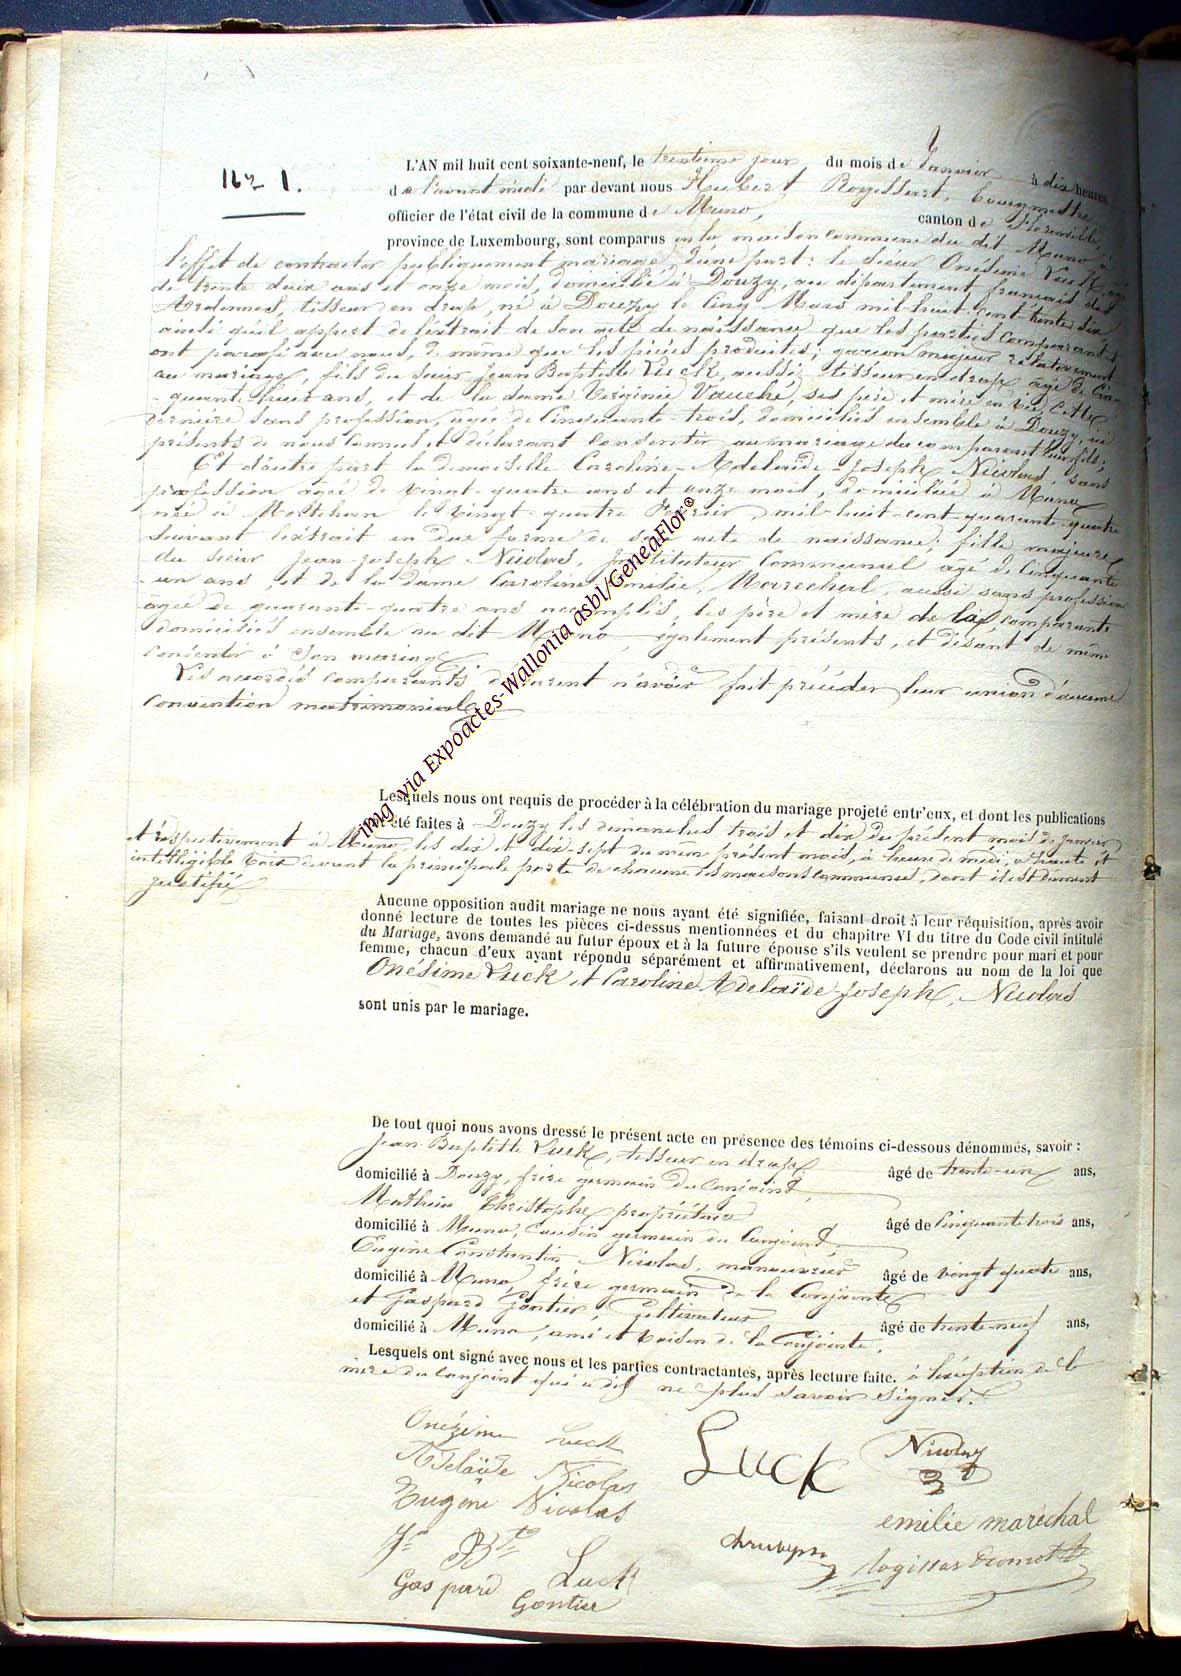 N° 1.
L'AN mil huit cent soixante-neuf, le trentième jour, du mois de Janvier à dix heures
de l'avant midi par devant nous Hubert Rogissart, bourgmestre
officier de l'état civil de la commune de Muno, canton de Florenville,
province de Luxembourg, sont comparus en la maison commune du dit Muno à
l'effet de contracter publiquement mariage, d'une part: le sieur Onésime Luck, âgé
de trente deux ans et onze mois, domicilié à Douzy, au département français des
Ardennes, tisseur en drap, né à Douzy le cinq Mars mil huit cent trente six
ainsi qu'il appert de l'extrait de son acte de naissance que les parties comparantes
ont parafé avec nous, de même que les pièces produites; garçon majeur relativement
au mariage, fils du sieur Jean Baptiste Luck, aussi tisseur en drap, âgé de cin-
-quante huit ans, et de la dame Verginie Vauché, ses père et mère en vie, cette
dernière sans profession, âgée de cinquante-trois, domiciliés ensemble à Douzy, ici
présents de nous connus et déclarant consentir au mariage du comparant leur fils;
Et d'autre part la demoiselle Caroline-Adelaïde-Joseph, Nicolas, sans
profession âgée de vingt-quatre ans et onze mois, domiciliée à Muno
née à Mortehan le vingt-quatre Février, mil-huit-cent-quarante-quatre
suivant l'extrait en due forme de son acte de naissance; fille majeure
du sieur Jean-Joseph Nicolas, Instituteur Communal âgé de cinquante
un ans, et de la dame Caroline Emélie, Marechal, aussi sans profession
âgée de quarante-quatre ans accomplis, les père et mère de la comparante
domiciliés ensemble au dit Muno, également présents, et disant de même
consentir à son mariage
Les comparants déclarent n'avoir fait précéder leur union d'aucune
convention matrimoniale
Lesquels nous ont requis de procéder à la célébration du mariage projeté entr'eux, et dont les publications
ont été faites à Douzy les dimanches trois et dix du présent mois de janvier
et respectivement à Muno, les dix et dix-sept du même présent mois, à heure de midi, à haute et
intelligible voix devant la principale porte de chacune des maisons communes, dont il est dûment
justifié
Aucune opposition audit mariage ne nous ayant été signifiée, faisant droit à leur réquisition, après avoir
donné lecture de toutes les pièces ci-dessus mentionnées et du chapitre VI du titre du Code civil intitulé
du Mariage, avons demandé au futur époux et à la future épouse s'ils veulent se prendre pour mari et pour
femme, chacun d'eux ayant répondu séparément et affirmativement, déclarons au nom de la loi que
Onésime Luck, et Caroline Adelaïde-Joseph, Nicolas
sont unis par le mariage.
De tout quoi nous avons dressé le présent acte en présence des témoins ci-dessous dénommés, savoir :
Jean-Baptiste Luck, tisseur en drap, âgé de trente-un ans,
domicilié à Douzy, frère germain du Conjoint,
Mathieu Christophe propriétaire âgé de cinquante trois ans,
domicilié à Muno, Cousin germain du Conjoint,
Eugène Constantin Nicolas, manouvrier âgé de vingt quatre ans,
domicilié à Muno, frère germain de la Conjointe
et Gaspard Gontier, Cultivateur âgé de trente-neuf ans,
domicilié à Muno, ami et voisin de la Conjointe.
Lesquels ont signé avec nous et les parties contractantes, après lecture faite. à l'exception de la
mère du conjoint qui a dit ne plus savoir signer.
Onézime Luck
Adelaïde Nicolas
Eugène Nicolas
Jn Bte Luck
Gaspard Gontier
Luck
Nicolas
emilie marechal
img via Expoactes-Wallonia asbl/GeneaFlor©